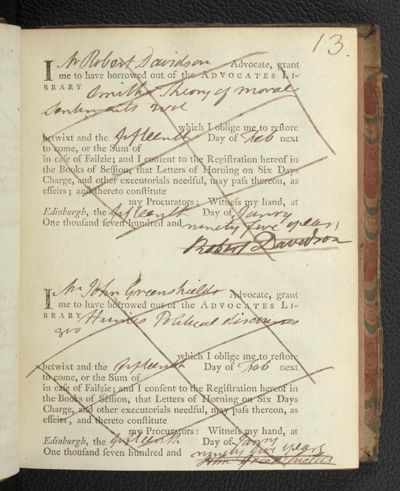 13.
I Mr Robert Davidson Advocate, grant
me to have borrowed out of the ADVOCATES LI-
BRARY Smith's Theory of moral
Sentiments
which I oblige me to restore
betwixt and the fifteenth Day of Feb next
to come, or the Sum of
in case of Failzie; and I consent to the Registration hereof in
the Books of Session, that Letters of Horning on Six Days
Charge, and other executorials needful, may pass thereon, as
effeirs; and thereto constitute
my Procurators: Witness my hand, at
Edinburgh, the fifteenth Day of Janry
One thousand seven hundred and ninety five years
Robert Davidson
I Mr John Greenshields Advocate, grant
me to have borrowed out of the ADVOCATES LI-
BRARY Humes Political discourses
which I oblige me to restore
betwixt and the fifteenth Day of Feb next
to come, or the Sum of
in case of Failzie; and I consent to the Registration hereof in
the Books of Session, that Letters of Horning on Six Days
Charge, and other executorials needful, may pass thereon, as
effeirs, and thereto constitute
my Procurators: Witness my hand, at
Edinburgh, the fifteenth Day of Janry
One thousand seven hundred and ninety five years